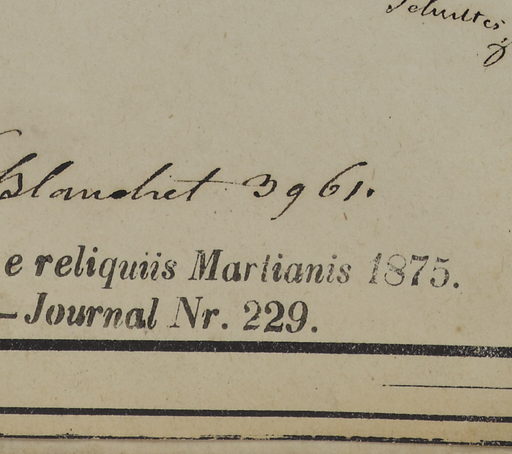 Schultes
Blanchet 3961.
e reliquiis Martianis 1875.
—Journal Nr. 229.